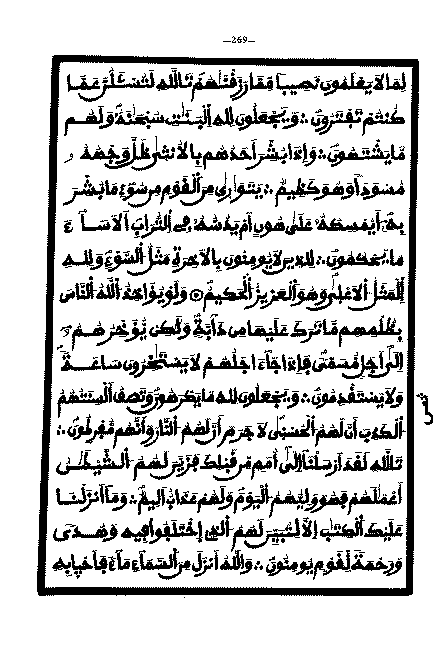 —269—
لِّمَا لَا يَعْلَمُونَ نَصِيبًا مِّمَّا رَزَقْنَٰهُمْ تَاللَّهِ لَتُسْـَٔلُنَّ عَمَّا
كُنتُمْ تَفْتَرُونَ ∴ وَيَجْعَلُونَ لِلهِ الْبَنَٰتِ سُبْحَٰنَهُۥ وَلَهُم
مَّا يَشْتَهُونَ ∴ وَإِذَا بُشِّرَ أَحَدُهُم بِالْأُنثَىٰ ظَلَّ وَجْهُهُۥ
مُسْوَدًّا وَهُوَ كَظِيمٌ ∴ يَتَوَٰرَىٰ مِنَ الْقَوْمِ مِن سُوءِ مَا بُشِّرَ
بِهِۦٓ أَيُمْسِكُهُۥ عَلَىٰ هُونٍ أَمْ يَدُسُّهُۥ فِي التُّرَابِ أَلَا سَآءَ
مَا يَحْكُمُونَ ∴ لِلَّذِينَ لَا يُومِنُونَ بِالْأَخِرَةِ مَثَلُ السَّوْءِ وَلِلهِ
الْمَثَلُ الْأَعْلَىٰ وَهُوَ الْعَزِيزُ الْحَكِيمُ ۝ وَلَوْ يُوَاخِذُ اللَّهُ النَّاسَ
بِظُلْمِهِم مَّا تَرَكَ عَلَيْهَا مِن دَآبَّةٍ وَلَٰكِن يُؤَخِّرُهُمُۥٓ
إِلَىٰٓ أَجَلٍ مُّسَمًّى فَإِذَا جَآءَ اجَلُهُمْ لَا يَسْتَٰخِرُونَ سَاعَةً
وَلَا يَسْتَقْدِمُونَ ∴ وَيَجْعَلُونَ لِلهِ مَا يَكْرَهُونَ وَتَصِفُ أَلْسِنَتُهُمُ
الْكَذِبَ أَنَّ لَهُمُ الْحُسْنَىٰ لَا جَرَمَ أَنَّ لَهُمُ النَّارَ وَأَنَّهُم مُّفْرِطُونَ ∴
تَاللَّهِ لَقَدَ ارْسَلْنَآ إِلَىٰٓ أُمَمٍ مِّن قَبْلِكَ فَزَيَّنَ لَهُمُ الشَّيْطَٰنُ
أَعْمَٰلَهُمْ فَهُوَ وَلِيُّهُمُ الْيَوْمَ وَلَهُمْ عَذَابٌ الِيمٌ ∴ وَمَآ أَنزَلْنَا
عَلَيْكَ الْكِتَٰبَ إِلَّا لِتُبَيِّنَ لَهُمُ الَّذِي اخْتَلَفُوا فِيهِ وَهُدًى
وَرَحْمَةً لِّقَوْمٍ يُومِنُونَ ∴ وَاللَّهُ أَنزَلَ مِنَ السَّمَآءِ مَآءً فَأَحْيَا بِهِ